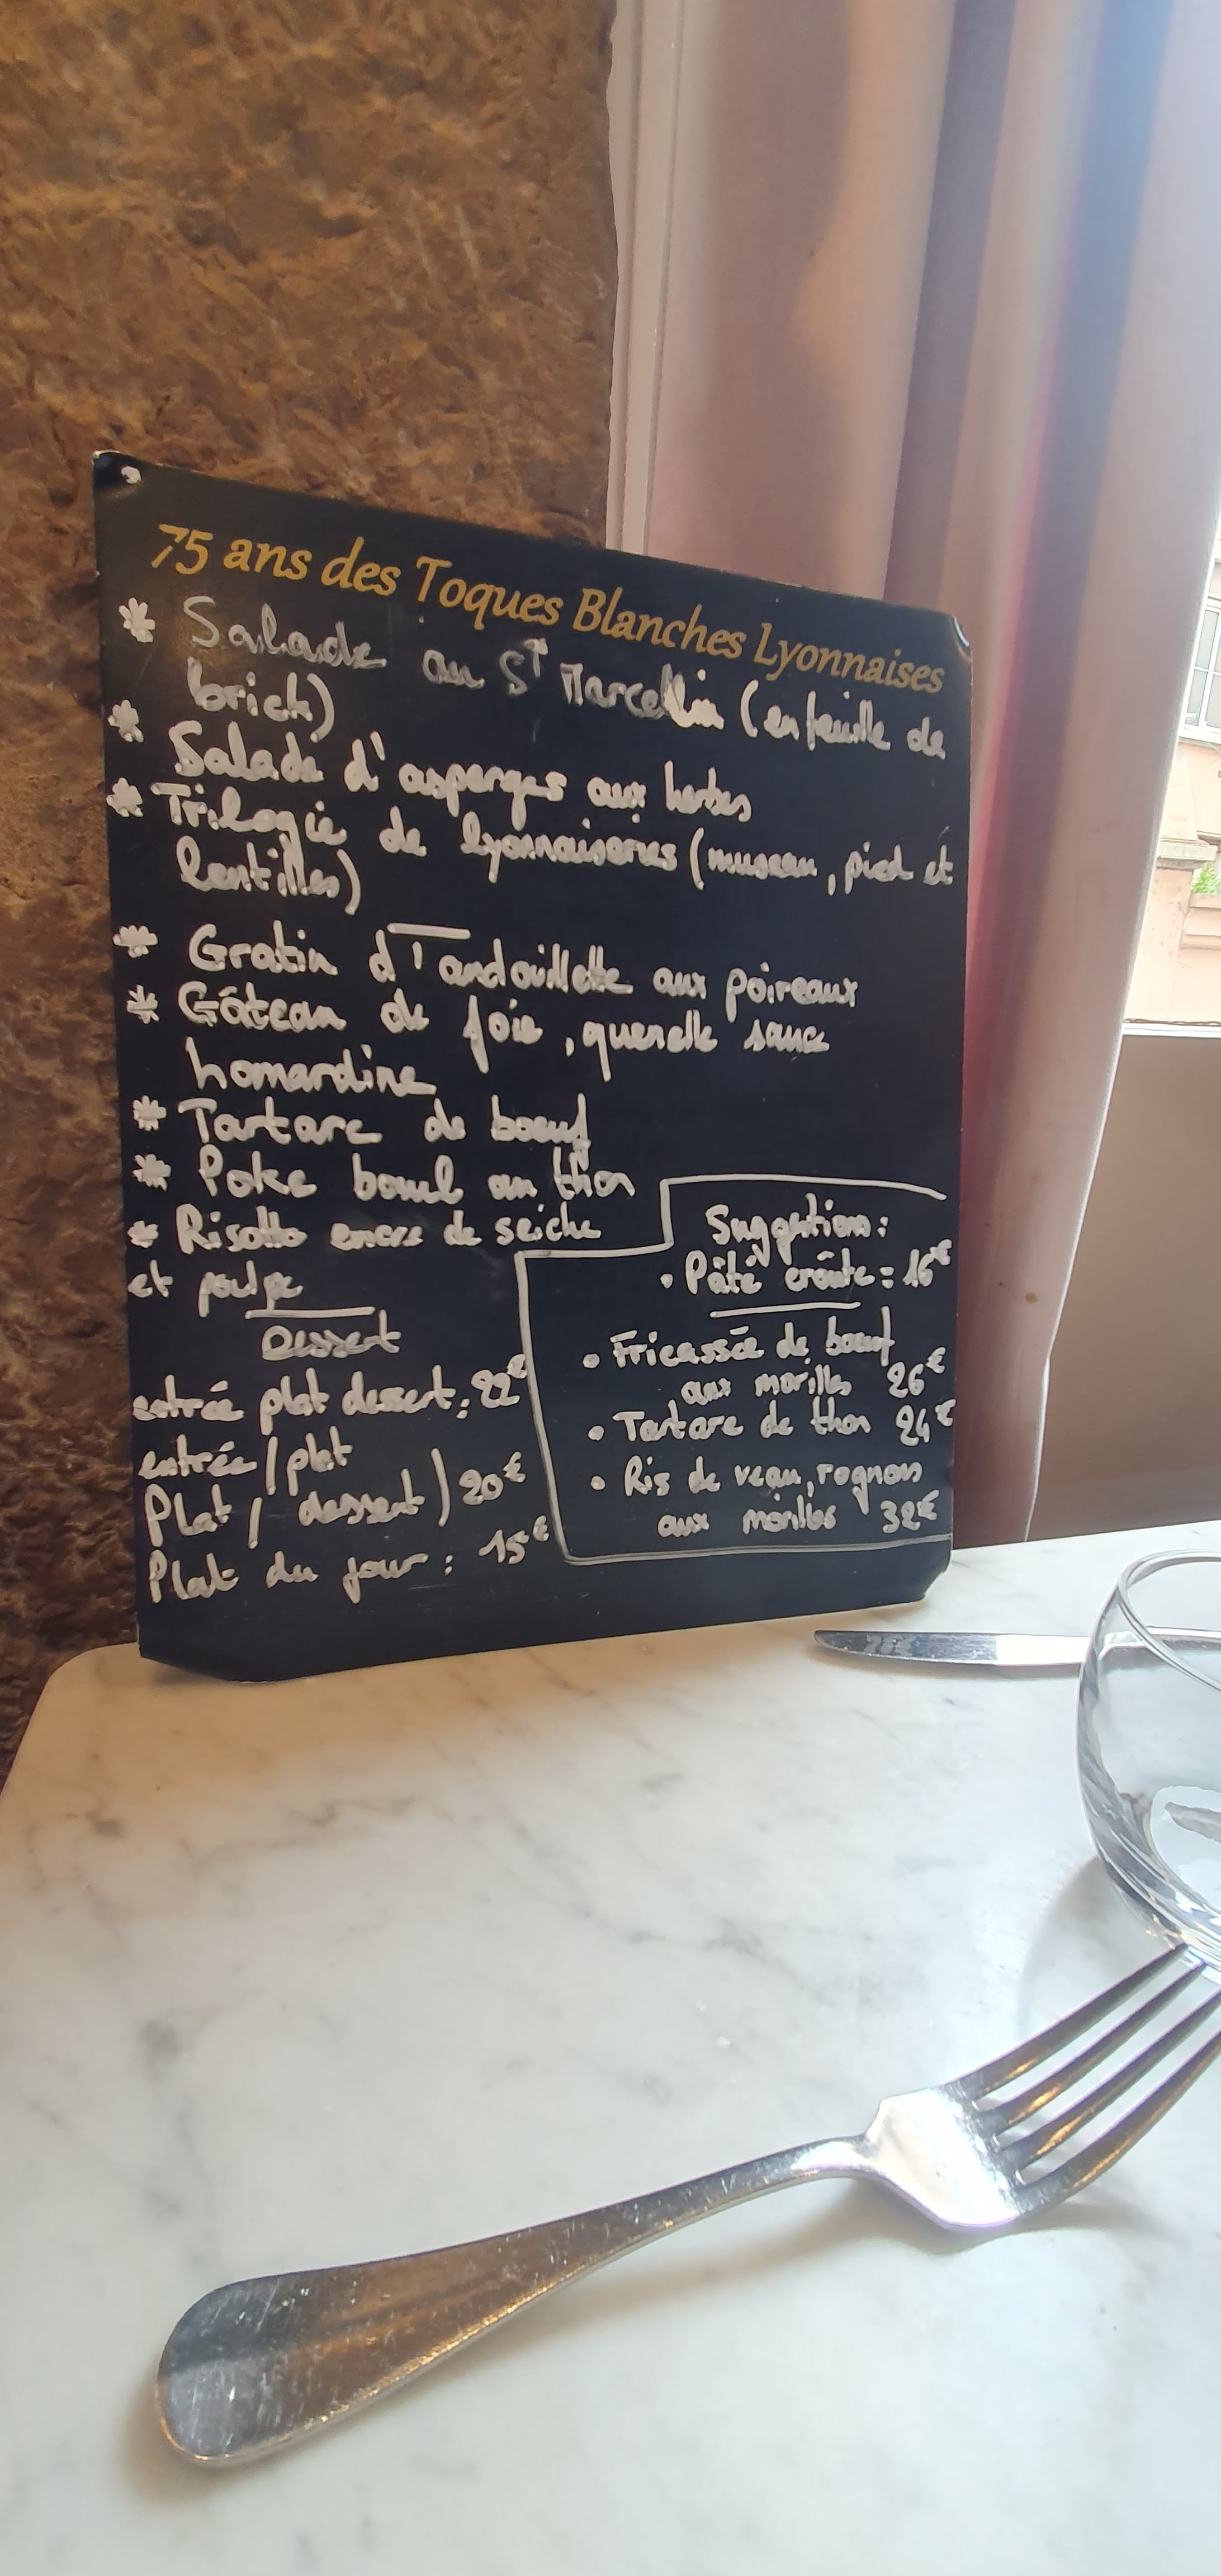 75 ans des Toques Blanches Lyonnaises
* Salade au St Marcellin (en feuille de
brick)
* Salade d'asperges aux herbes
* Trilogie de lyonnaiseries (museau, pied et
lentilles)
* Gratin d'andouillette aux poireaux
* Gâteau de foie, quenelle sauce
homardine
* Tartare de boeuf
* Poke bowl au thon
* Risotto encre de seiche
et poulpe
Dessert
entrée plat dessert : 22€
entrée / plat
Plat / dessert) 20€
Plat du jour : 15€
Suggestion :
• Pâté croûte = 16€
• Fricassée de boeuf
aux morilles 26€
• Tartare de thon 24€
• Ris de veau, rognons
aux morilles 32€